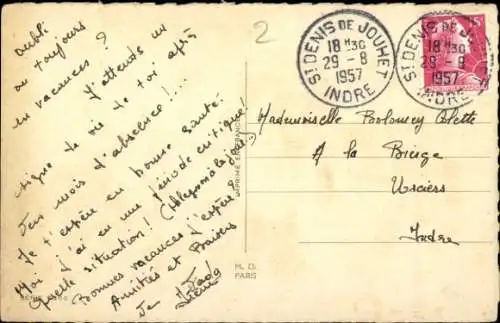 oublié
ou toujours
en vacances ?
J'attends un
signe de vie de toi après
Trois mois d'absence !...
Je t'espère en bonne santé
Moi j'ai eu une période critique !
Quelle situation !
Bonnes vacances j'espère
Amitiés et Baisers
ST DENIS DE JOUHET
18 H30
29 - 8
1957
INDRE
ST DENIS DE JOUHET
18 H30
29 - 8
1957
INDRE
2
Mademoiselle Colette
A la
Urciers
Indre
M. D.
PARIS